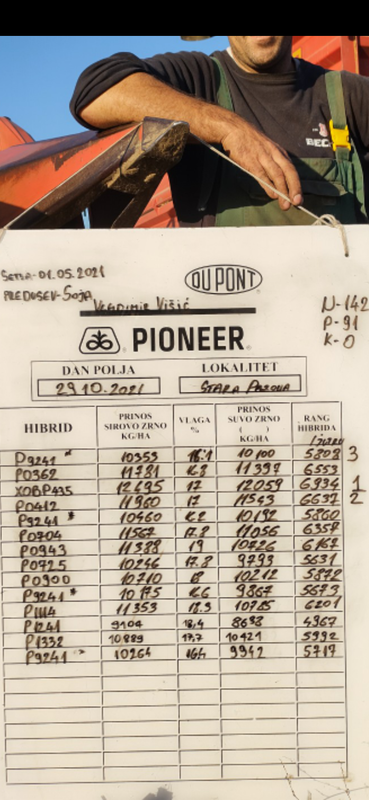 BEC
Setva-01.05.2021
PREDUSEV-Soja
DU PONT
Vladimir Višić
N-142
P-91
K-0
PIONEER
DAN POLJA LOKALITET
29.10.2021 STARA PAZOVA
HIBRID PRINOS SIROVO ZRNO KG/HA VLAGA % PRINOS SUVO ZRNO ( ) KG/HA RANG HIBRIDA
P9241 * 10353 16.1 10100 5808 3
P0362 11781 16.8 11397 6553
X0BP435 12695 17 12059 6934 1
P0412 11960 17 11543 6637 2
P9241 * 10460 16.2 10192 5860
P0704 11567 17.8 11056 6358
P0943 11388 19 10726 6167
P0725 10246 17.8 9793 5631
P0900 10710 18 10212 5872
P9241 * 10175 16.6 9867 5673
P1114 11353 18.3 10785 6201
P1241 9104 18,4 8638 4967
P1332 10889 17,7 10421 5992
P9241 10264 16.4 9942 5717